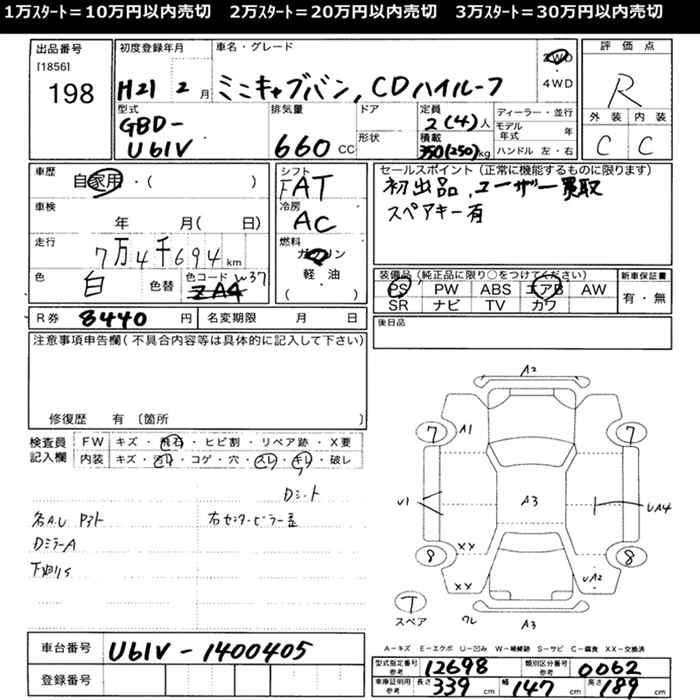 1万スタート＝10万円以内売切　2万スタート＝20万円以内売切　3万スタート＝30万円以内売切
出品番号 [1856] 198
初度登録年月 H21 2月
車名・グレード ミニキャブバン,CDハイルーフ
2WD ・ 4WD
評価点 R
外装 C 内装 C
型式 GBD-U61V
排気量 660 CC
ドア 形状
定員 2(4)人
積載 350(250)kg
ディーラー・並行
モデル年式 年
ハンドル 左・右
車歴 自家用・( )
車検 年 月( 日)
走行 7万4千694km
色 白 色替
色コード W37 ZA4
シフト FAT
冷房 AC
燃料 ガソリン 軽・油 ( )
セールスポイント(正常に機能するものに限ります)
初出品,ユーザー買取
スペアキー有
装備品(純正品に限り○をつけてください)
PS PW ABS エアB AW
SR ナビ TV カワ
新車保証書 有・無
R券 8440円
名変期限 月 日
後日品
注意事項申告欄(不具合内容等は具体的に記入して下さい)
修復歴 有 〔箇所
検査員記入欄
FW キズ・飛石・ヒビ割・リペア跡・X要
内装 キズ・汚れ・コゲ・穴・スレ・キレ・破レ
Dシート
右センターピラー
DミラーA
下廻りS
A2
7 A1 7
U1 A3 UA4
XX
8 8
XX UA2
T スペア
ワレ A3
A－キズ E－エクボ U－凹み W－補修跡 S－サビ C－腐食 XX－交換済
車台番号 U61V-1400405
登録番号
型式指定番号 参考 12698
類別区分番号 参考 0062
車庫証明用 参考 長さ 339cm 幅 147cm 高さ 189cm